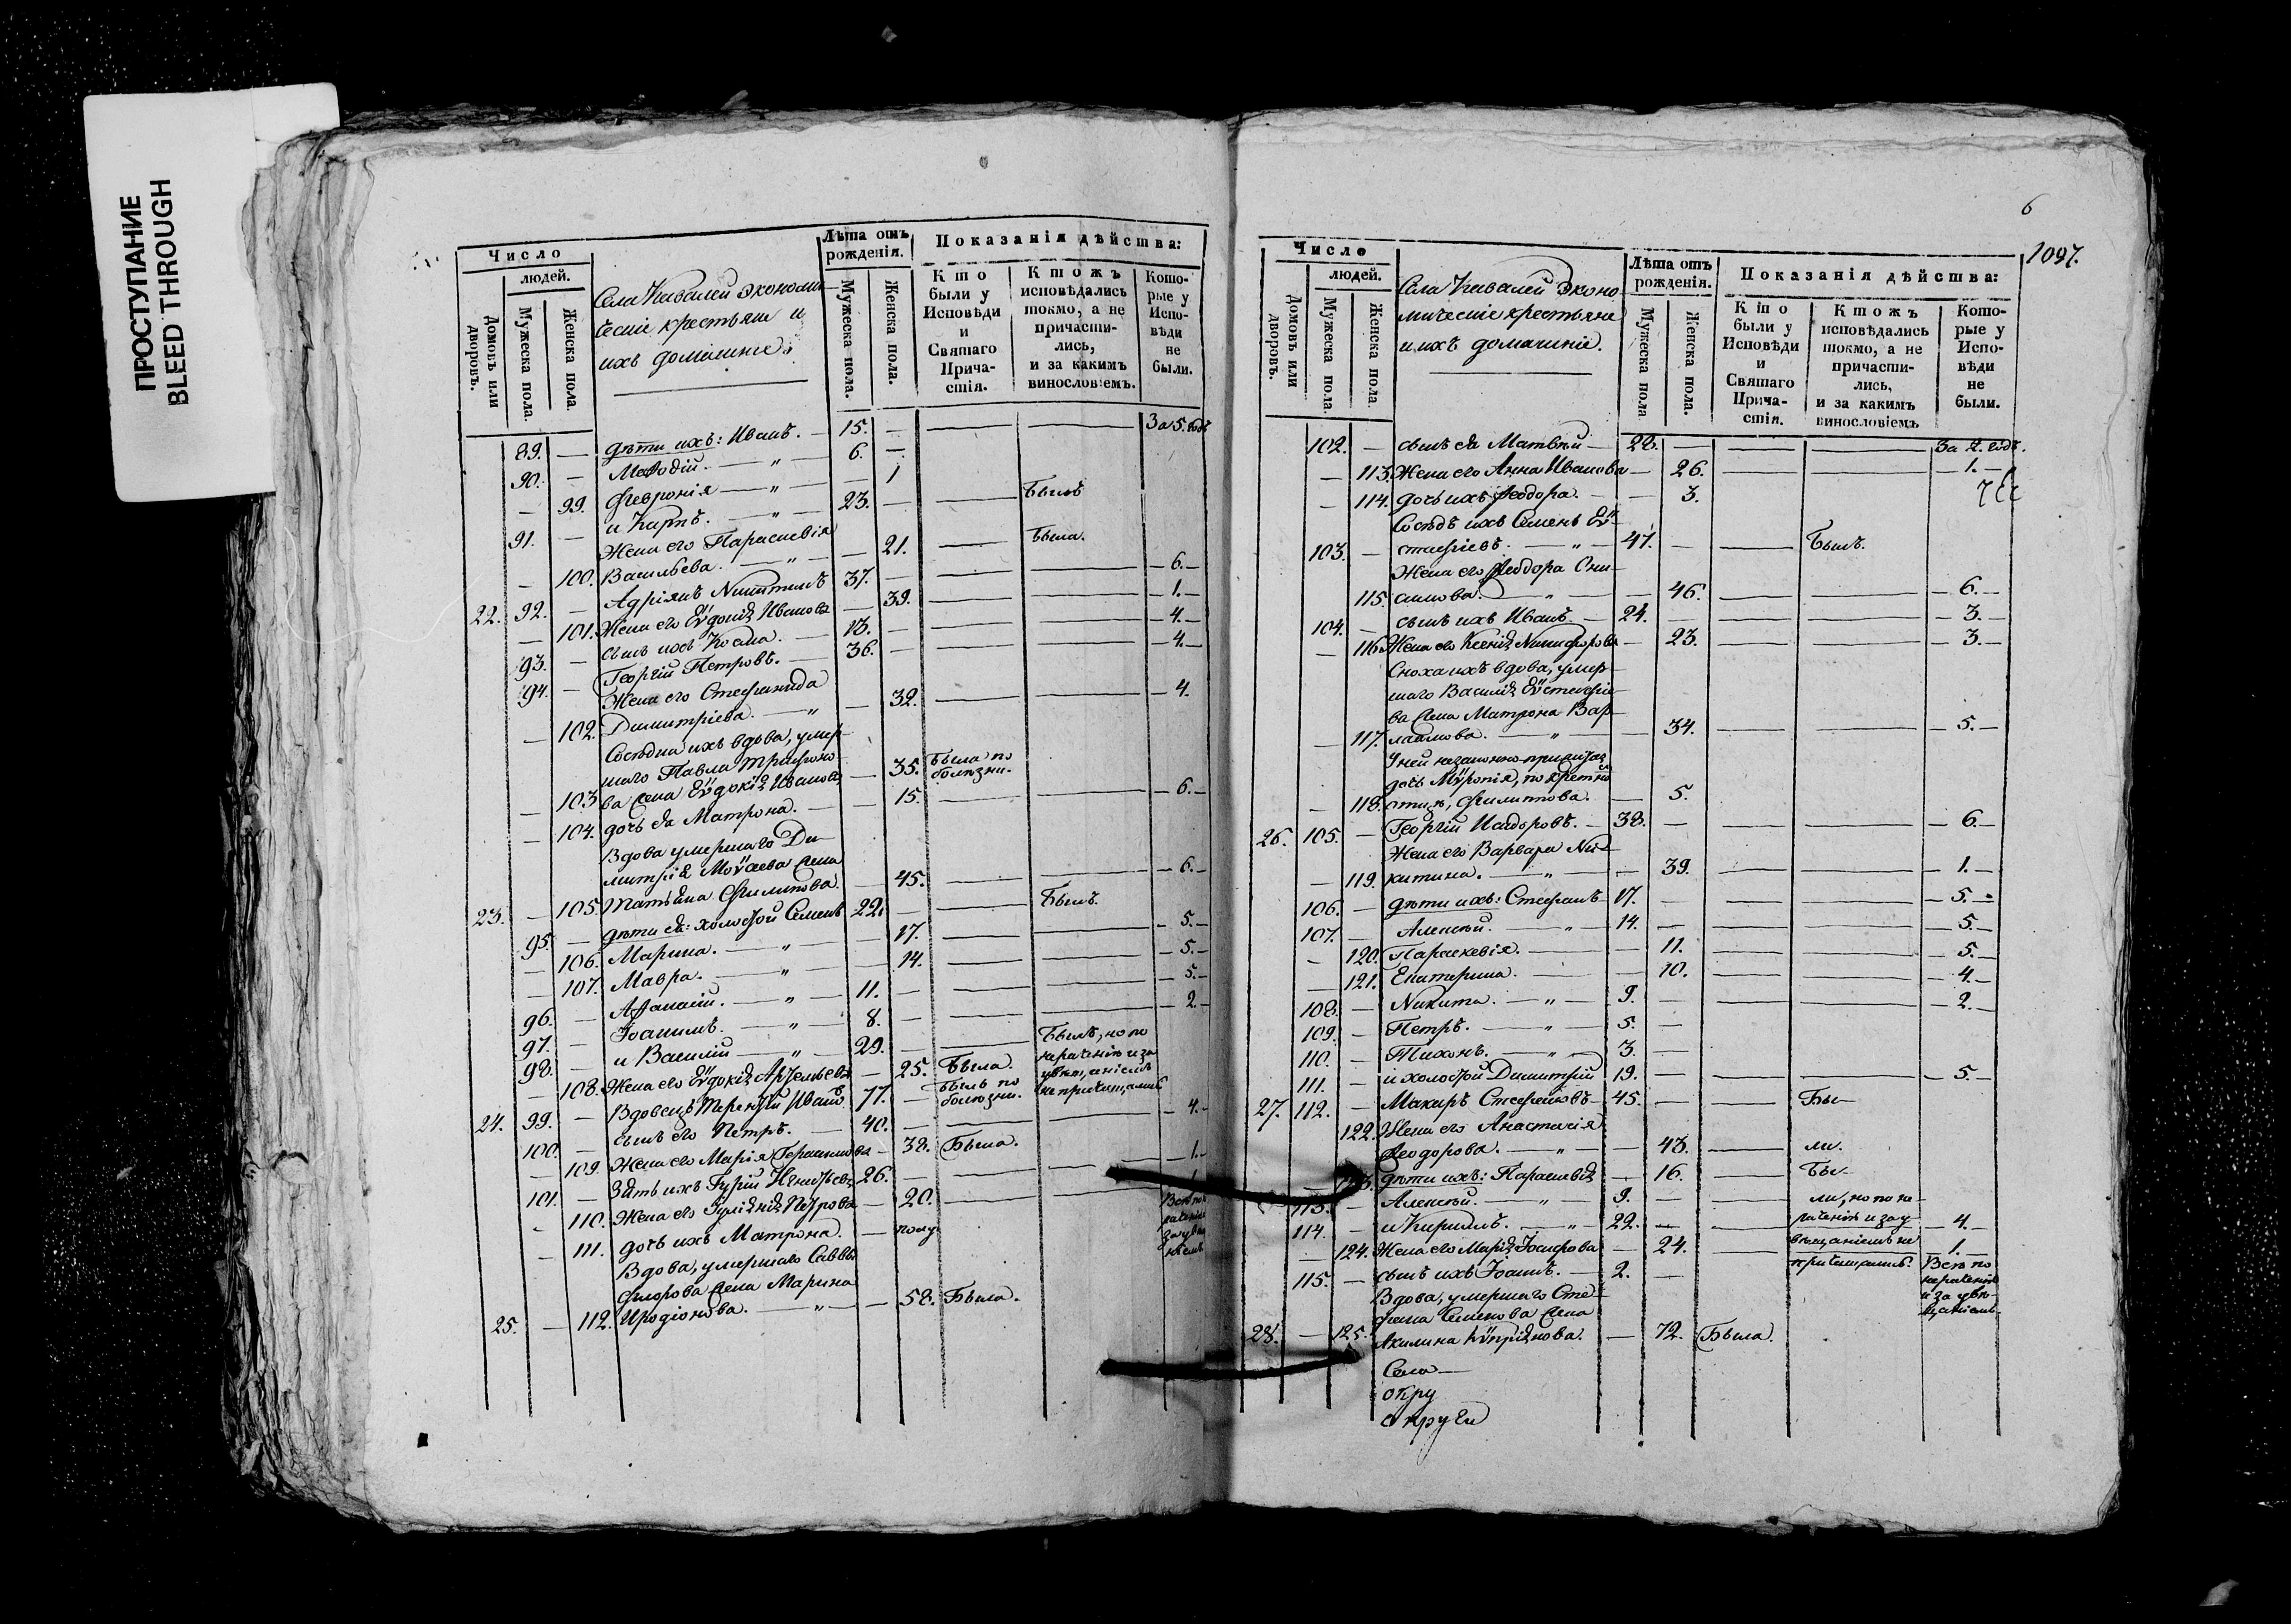 ПРОСТУПАНИЕ
BLEED THROUGH
Число
людей.
Домовъ или дворовъ.
Мужеска пола.
Женска пола.
Села Кивалей Экономи-
ческіе крестьяне и
ихъ домашніе.
Лѣта отъ рожденія.
Мужеска пола.
Женска пола.
Показанія дѣйства:
Кто были у Исповѣди и Святаго Причастія.
Ктожъ исповѣдались токмо, а не причастились, и за какимъ винословіемъ.
Которые у Исповѣди не были.
89. — дѣти ихъ: Иванъ. — 15. — За 5. годъ
90. — Меѳодій. — " — 6. —
— 99. Февронія — " — — 1
91. — и Карпъ. — " — 23. — Былъ
Жена его Параскевія
— 100. Васильева. — " — — 21. Была.
22. 92. — Адріянъ Никитинъ 37. — 6. —
— 101. Жена его Еѵдокія Иванова — 39. — 1. —
93. — сынъ ихъ Косма. — 13. — 4. —
94. — Георгій Петровъ. — 36. — 4. —
Жена его Стефанида
— 102. Димитріева. — " — 32. — 4.
Сосѣдка ихъ вдова, умер-
шаго Павла Трифоно-
— 103 ва жена Еѵдокія Иванова — 35. Была по болѣзни.
— 104. дочь ея Матрона. — — 15. — 6. —
Вдова умершаго Ди-
митрія Моѵсеева жена
23. — 105. Татьяна Филипова. — 45. — 6. —
95. — дѣти ея: холостой Семенъ 22. — Былъ.
— 106. Марина. — " — — 17. — 5. —
— 107. Мавра. — " — — 14. — 5. —
96. — Аѳанасій. — " — 11. — 5. —
97. — Іоакимъ. — " — 8. — 2. —
98. — и Василій — " — 29. — Былъ, но по
— 108. Жена его Еѵдокія Артемьева — 25. Была.
24. 99. — Вдовецъ Терентій Иван. 77. — былъ по болѣзни.
100. — сынъ его Петръ. — 40. — 4. —
— 109. Жена его Марія Герасимова — 38. Была.
101. — Зять ихъ Гурій 26. — 1. —
— 110. Жена его Петрова — 20. — 1
— 111. дочь ихъ Матрона. — полу
Вдова, умершаго Саввы
Флорова жена Марина
25. — 112. Иродіонова. — " — — 58. Была.
6
1097.
Число
людей.
Домовъ или дворовъ.
Мужеска пола.
Женска пола.
Села Кивалей Эконо-
мическіе крестьяне
и ихъ домашніе.
Лѣта отъ рожденія.
Мужеска пола
Женска пола.
Показанія дѣйства:
Кто были у Исповѣди и Святаго Причастія.
Ктожъ исповѣдались токмо, а не причастились, и за какимъ винословіемъ
Которые у Исповѣди не были.
102. — сынъ ея Матвѣй — 28. — За 2. годъ.
— 113. Жена его Анна Иванова — 26. — 1. —
— 114. дочь ихъ Ѳеодора. — — 3.
Сосѣдъ ихъ Семенъ Еѵ-
103. — стафіевъ. — " — 47. — Былъ.
Жена его Ѳеодора Они-
115. симова. — " — — 46. — 6. —
104. — сынъ ихъ Иванъ. — 24. — 3. —
— 116 Жена его Ксенія Никифорова — 23. — 3. —
Сноха ихъ вдова, умер-
шаго Василія Еѵстафіе-
ва жена Матрона Вар-
— 117. лаамова. — " — — 34. — 5. —
У ней незаконно прижитая
дочь Мѵропія, по крестно
— 118. отцѣ, Филиппова. — 5.
26. 105. — Георгій Исидоровъ. — 38. — 6. —
Жена его Варвара Ни-
— 119. китина. — " — — 39. — 1. —
106. — дѣти ихъ: Стефанъ — 17. — 5. —
107. — Алексѣй. — " — 14. — 5. —
— 120. Параскевія. — — 11. — 5. —
— 121. Екатерина. — — 10. — 4. —
108. — Никита. — " — 9. — 2. —
109. — Петръ. — " — 5. —
110. — Тихонъ. — " — 3. —
111. — и холостой Димитрій 19. — 5. —
27. 112. — Макаръ Стефановъ — 45. — Бы-
122. Жена его Анастасія
Ѳеодорова. — " — — 43. — ли.
— 123. дѣти ихъ: Параскевія — 16. — Бы-
113. — Алексѣй. — " — 9. — ли, но по не-
114. — и Кириллъ. — " — 22. — 4. —
— 124. Жена его Марія Іосифова — 24. — 1. —
115. — сынъ ихъ Іоаннъ. — 2. —
Вдова, умершаго Сте-
фана Семенова жена
28. — 125. Акилина Кѵпріянова. — 72. Была.
Села —
окру
округи